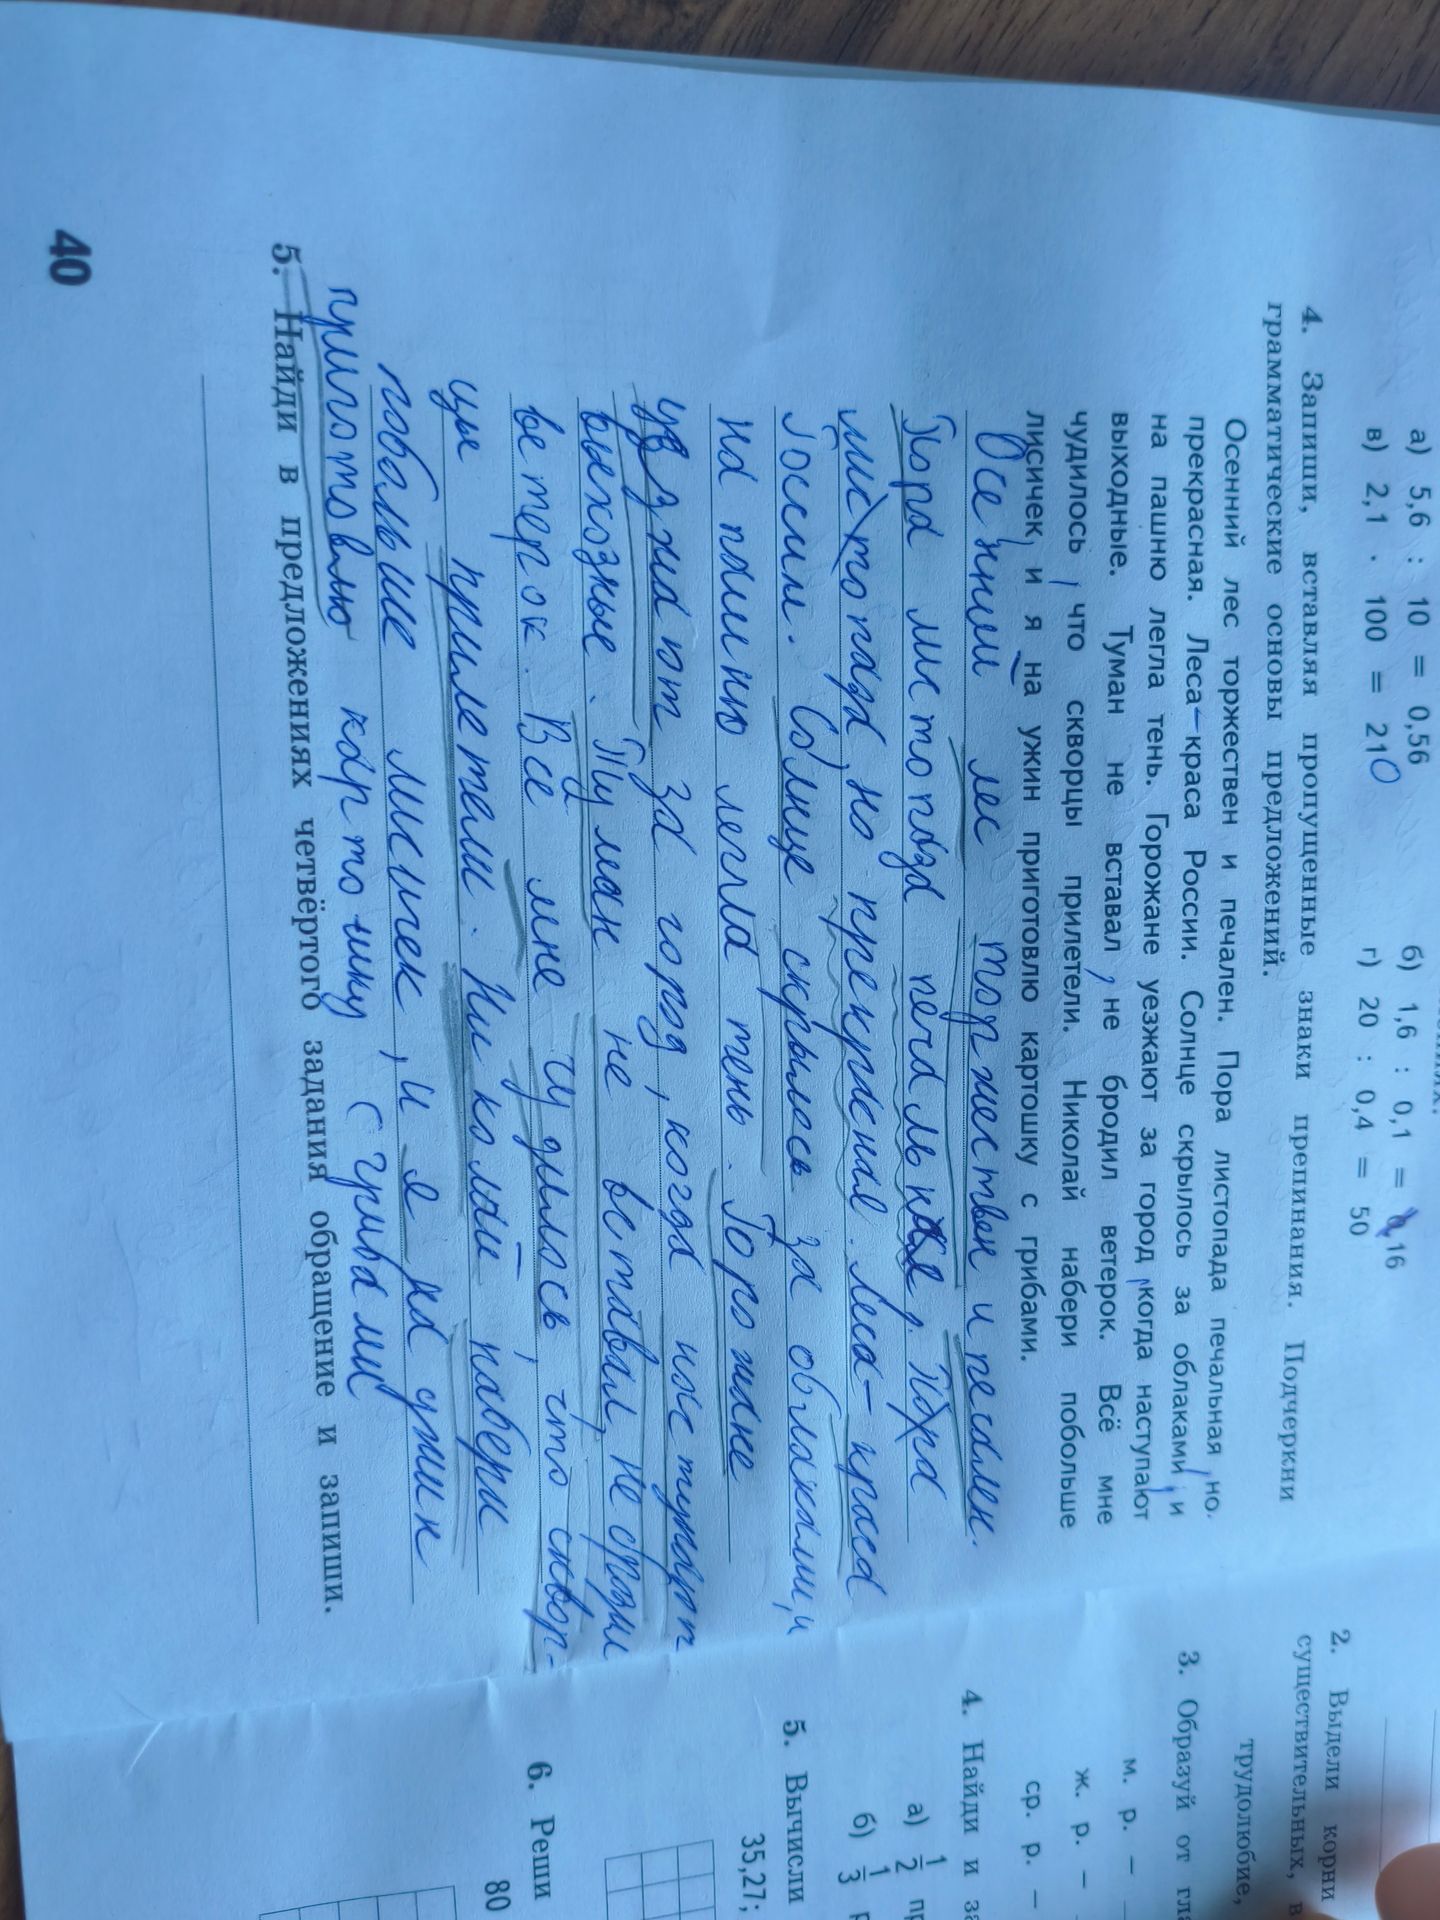 а) 5,6 : 10 = 0,56
б) 1,6 : 0,1 = 16
в) 2,1 · 100 = 210
г) 20 : 0,4 = 50
4. Запиши, вставляя пропущенные знаки препинания. Подчеркни
грамматические основы предложений.
Осенний лес торжествен и печален. Пора листопада печальная, но
прекрасная. Леса – краса России. Солнце скрылось за облаками, и
на пашню легла тень. Горожане уезжают за город, когда наступают
выходные. Туман не вставал, не бродил ветерок. Всё мне
чудилось, что скворцы прилетели. Николай набери побольше
лисичек, и я на ужин приготовлю картошку с грибами.
Осенний лес торжествен и печален.
Пора листопада печальная, Пора
листопада, но прекрасная. Леса – краса
России. Солнце скрылось за облаками, и
на пашню легла тень. Горожане
уезжают за город, когда наступают
выходные. Туман не вставал, не бродил
ветерок. Всё мне чудилось, что сквор-
цы прилетели. Николай набери
побольше лисичек, и я на ужин
приготовлю картошку с грибами
5. Найди в предложениях четвёртого задания обращение и запиши.
40
2. Выдели корни
существительных, в
3. Образуй от гла
трудолюбие,
м. р. –
ж. р. –
ср. р. –
4. Найди и за
а) 1/2 пр
б) 1/3 р
5. Вычисли
35,27;
6. Реши
80